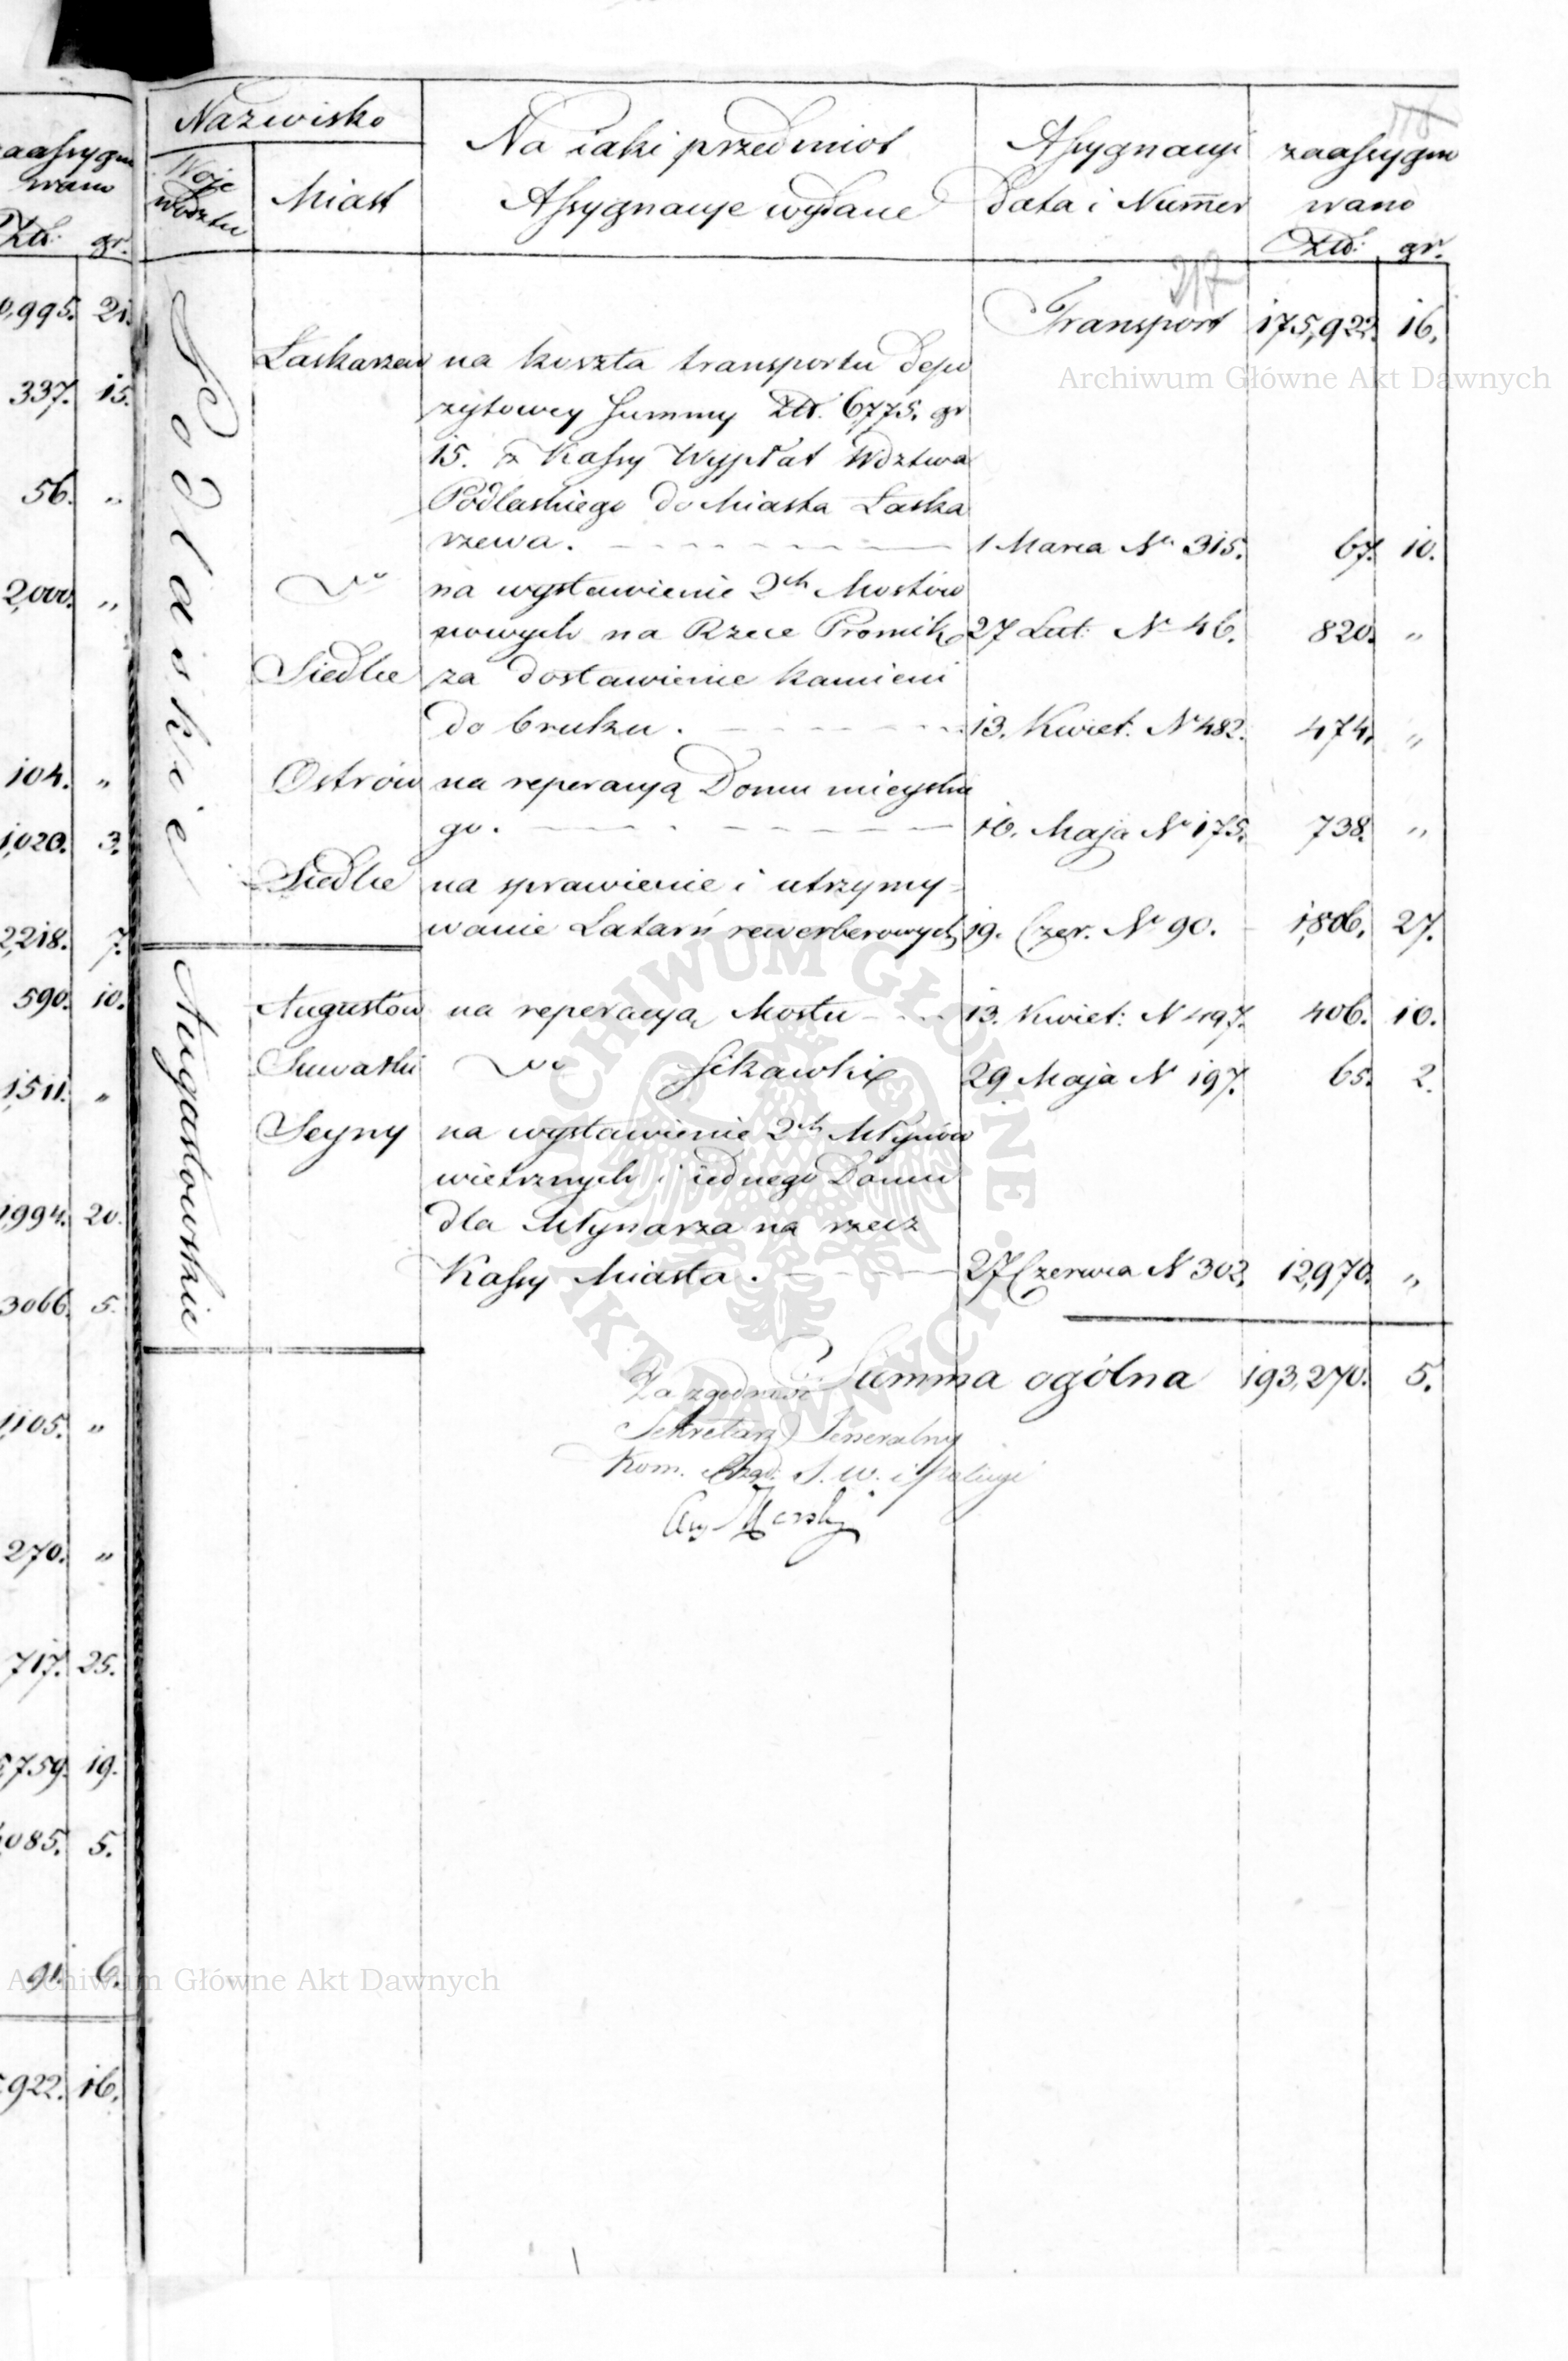 zaassygno
wano
Złł: gr.
0,995. 21.
337. 15.
56. "
2,000. "
104. "
1,020. 3.
2,218. 7.
590. 10.
1,511. "
1,994. 20.
3066. 5.
1,105. "
270. "
717. 25.
5,759. 19.
,085. 5.
91. 6.
5,922. 16.
Nazwisko
Woje
wództw
Miast
Na iaki przedmiot
Assygnacye wydane
Assygnacyi
data i Numer
zaassygno
wano
Złł: gr.
217
Transport 175,922. 16.
Podlaskie
Łaskarzew na koszta transportu depo
zytowey Summy Złł. 6,775. gr
15. z Kassy Wypłat Wdztwa
Podlaskiego do Miasta Łaska
rzewa. 1 Marca No 315. 67. 10.
Do na wystawienie 2ch Mostów
nowych na Rzece Promik 27 Lut: No 46. 820. "
Siedlce za dostawienie kamieni
do bruku. 13. Kwiet. No 482. 474. "
Ostrów na reperacyą Domu mieyskie
go. 16. Maja No 175. 738. "
Siedlce na sprawienie i utrzymy-
wanie Latarń rewerberowych 19. Czer. No 90. 1,806. 27.
Augustowskie
Augustów na reperacyą Mostu 13. Kwiet: N 497. 406. 10.
Suwałki Do Sikawki 29 Maja N 197. 65. 2.
Seyny na wystawienie 2ch Młynów
wietrznych i iednego Domu
dla Młynarza na rzecz
Kassy Miasta. 27 Czerwca N 302. 12,970. "
Summa ogólna 193,270. 5.
Za zgodność
Sekretarz Jeneralny
Kom. Rząd. S. W. i Policyi
Archiwum Główne Akt Dawnych
ARCHIWUM GŁÓWNE AKT DAWNYCH
Archiwum Główne Akt Dawnych